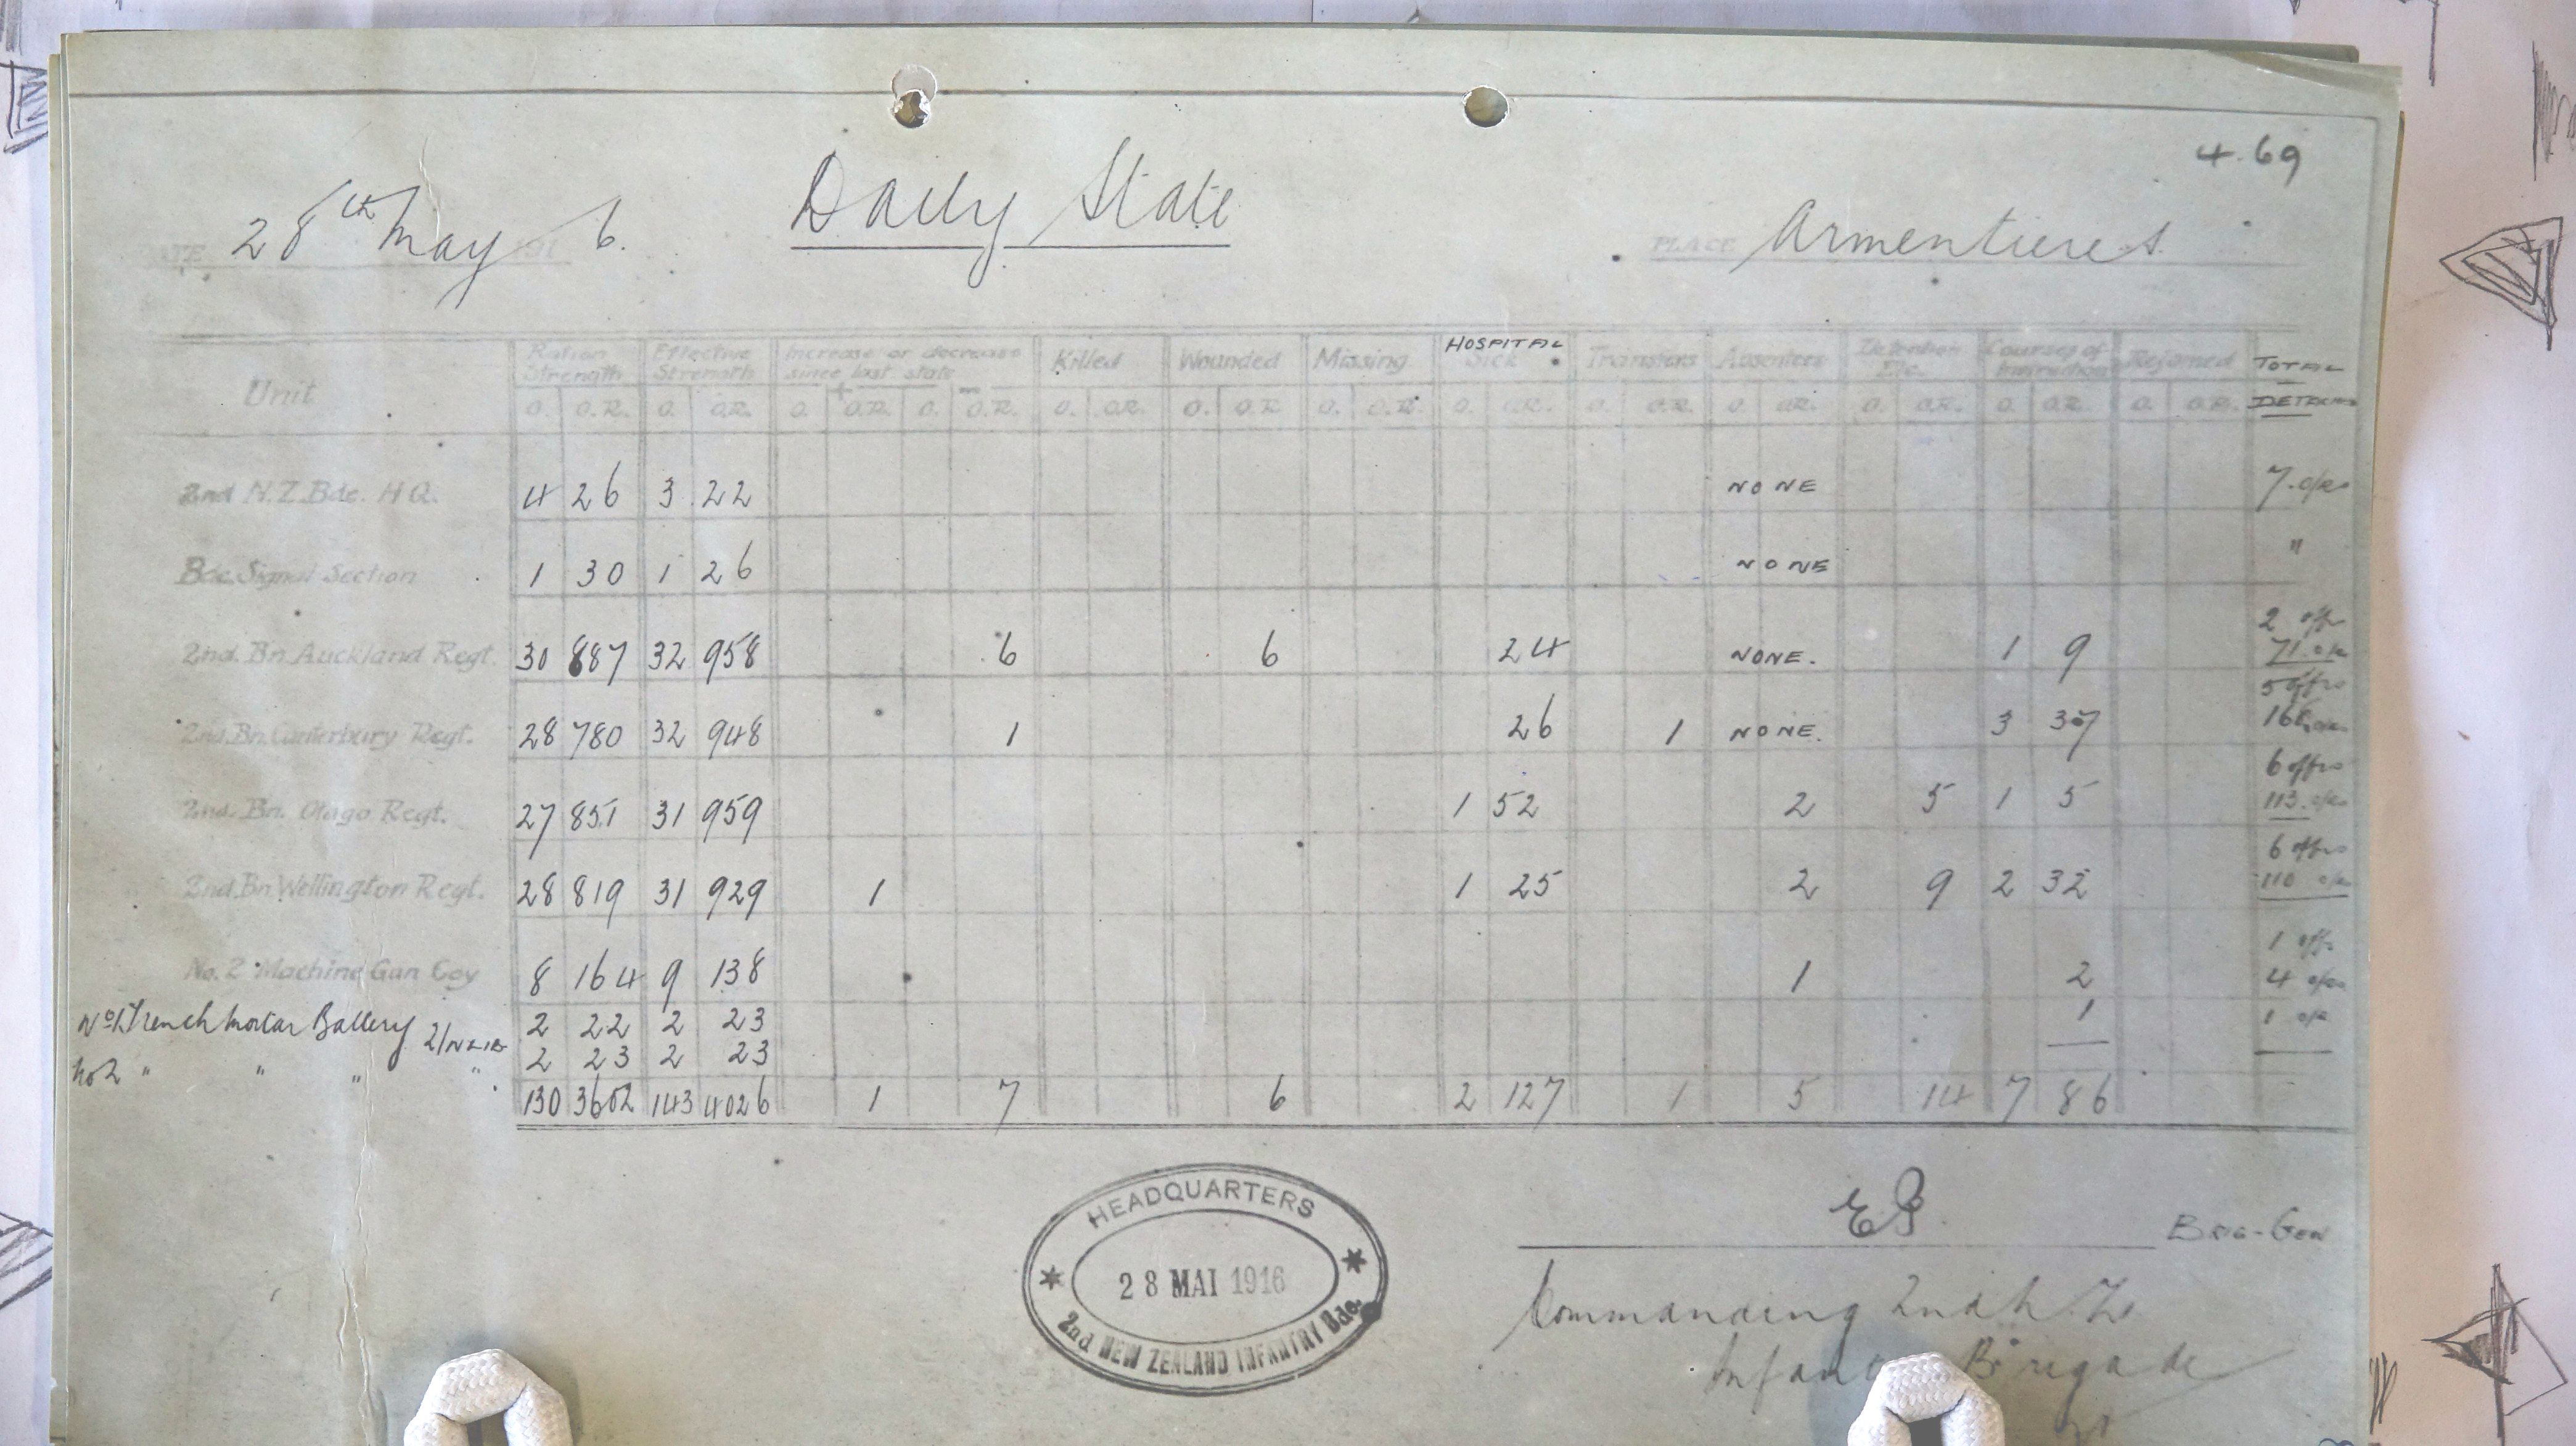 4.69
Daily State
DATE 28th May 1916.
PLACE Armentieres.
Unit
Ration Strength
Effective Strength
Increase or decrease since last state
+ -
Killed
Wounded
Missing
HOSPITAL
Sick
Transfers
Absentees
Detention Etc.
Courses of Instruction
Rejoined
TOTAL DETACHED
O. O.R. O. O.R. O. O.R. O. O.R. O. O.R. O. O.R. O. O.R. O. O.R. O. O.R. O. O.R. O. O.R. O. O.R. O. O.R.
2nd N.Z. Bde. H Q. 4 26 3 22 NONE 7 o/rs
Bde. Signal Section 1 30 1 26 NONE "
2nd. Bn. Auckland Regt. 30 887 32 958 6 6 24 NONE. 1 9 2 offr 71 o/rs
2nd. Bn. Canterbury Regt. 28 780 32 948 1 26 1 NONE. 3 37 5 offrs o/rs
2nd. Bn. Otago Regt. 27 851 31 959 1 52 2 5 1 5 6 offrs 113 o/rs
2nd. Bn. Wellington Regt. 28 819 31 929 1 1 25 2 9 2 32 6 offrs 110 o/rs
No. 2 Machine Gun Coy 8 164 9 138 1 2 1 offr 4 o/rs
No 1 Trench Mortar Battery 2/NZIB 2 22 2 23 1 1 o/r
No 2 " " " " 2 23 2 23
130 3602 143 4026 1 7 6 2 127 1 5 14 7 86
HEADQUARTERS
28 MAI 1916
2nd NEW ZEALAND INFANTRY Bde.
Brig-Gen
Commanding 2nd N.Z.
Brigade